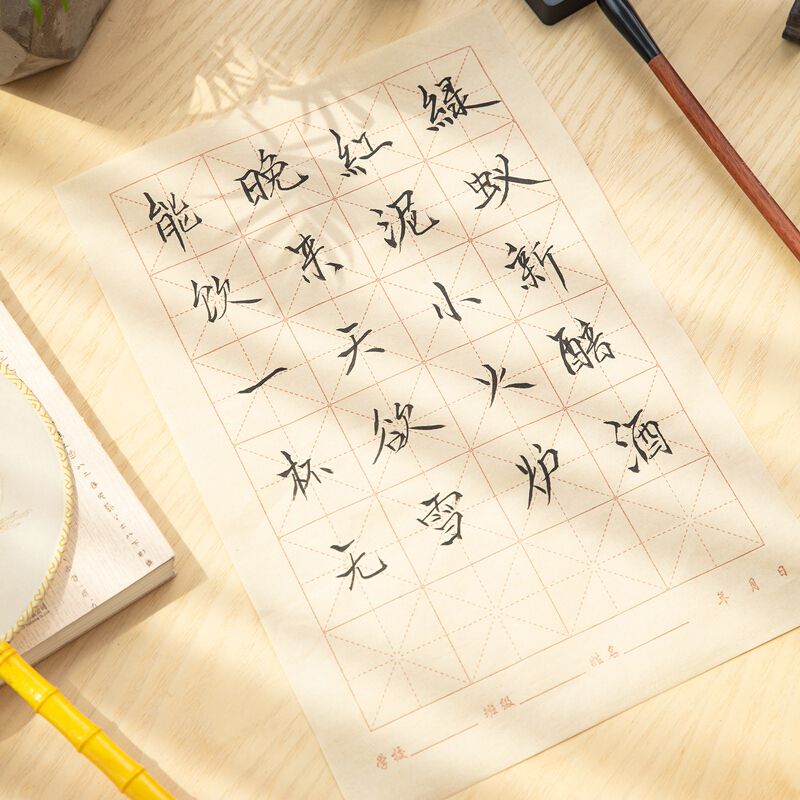 綠蚁新醅酒
红泥小火炉
晚来天欲雪
能饮一杯无
学校 班级 姓名 年 月 日